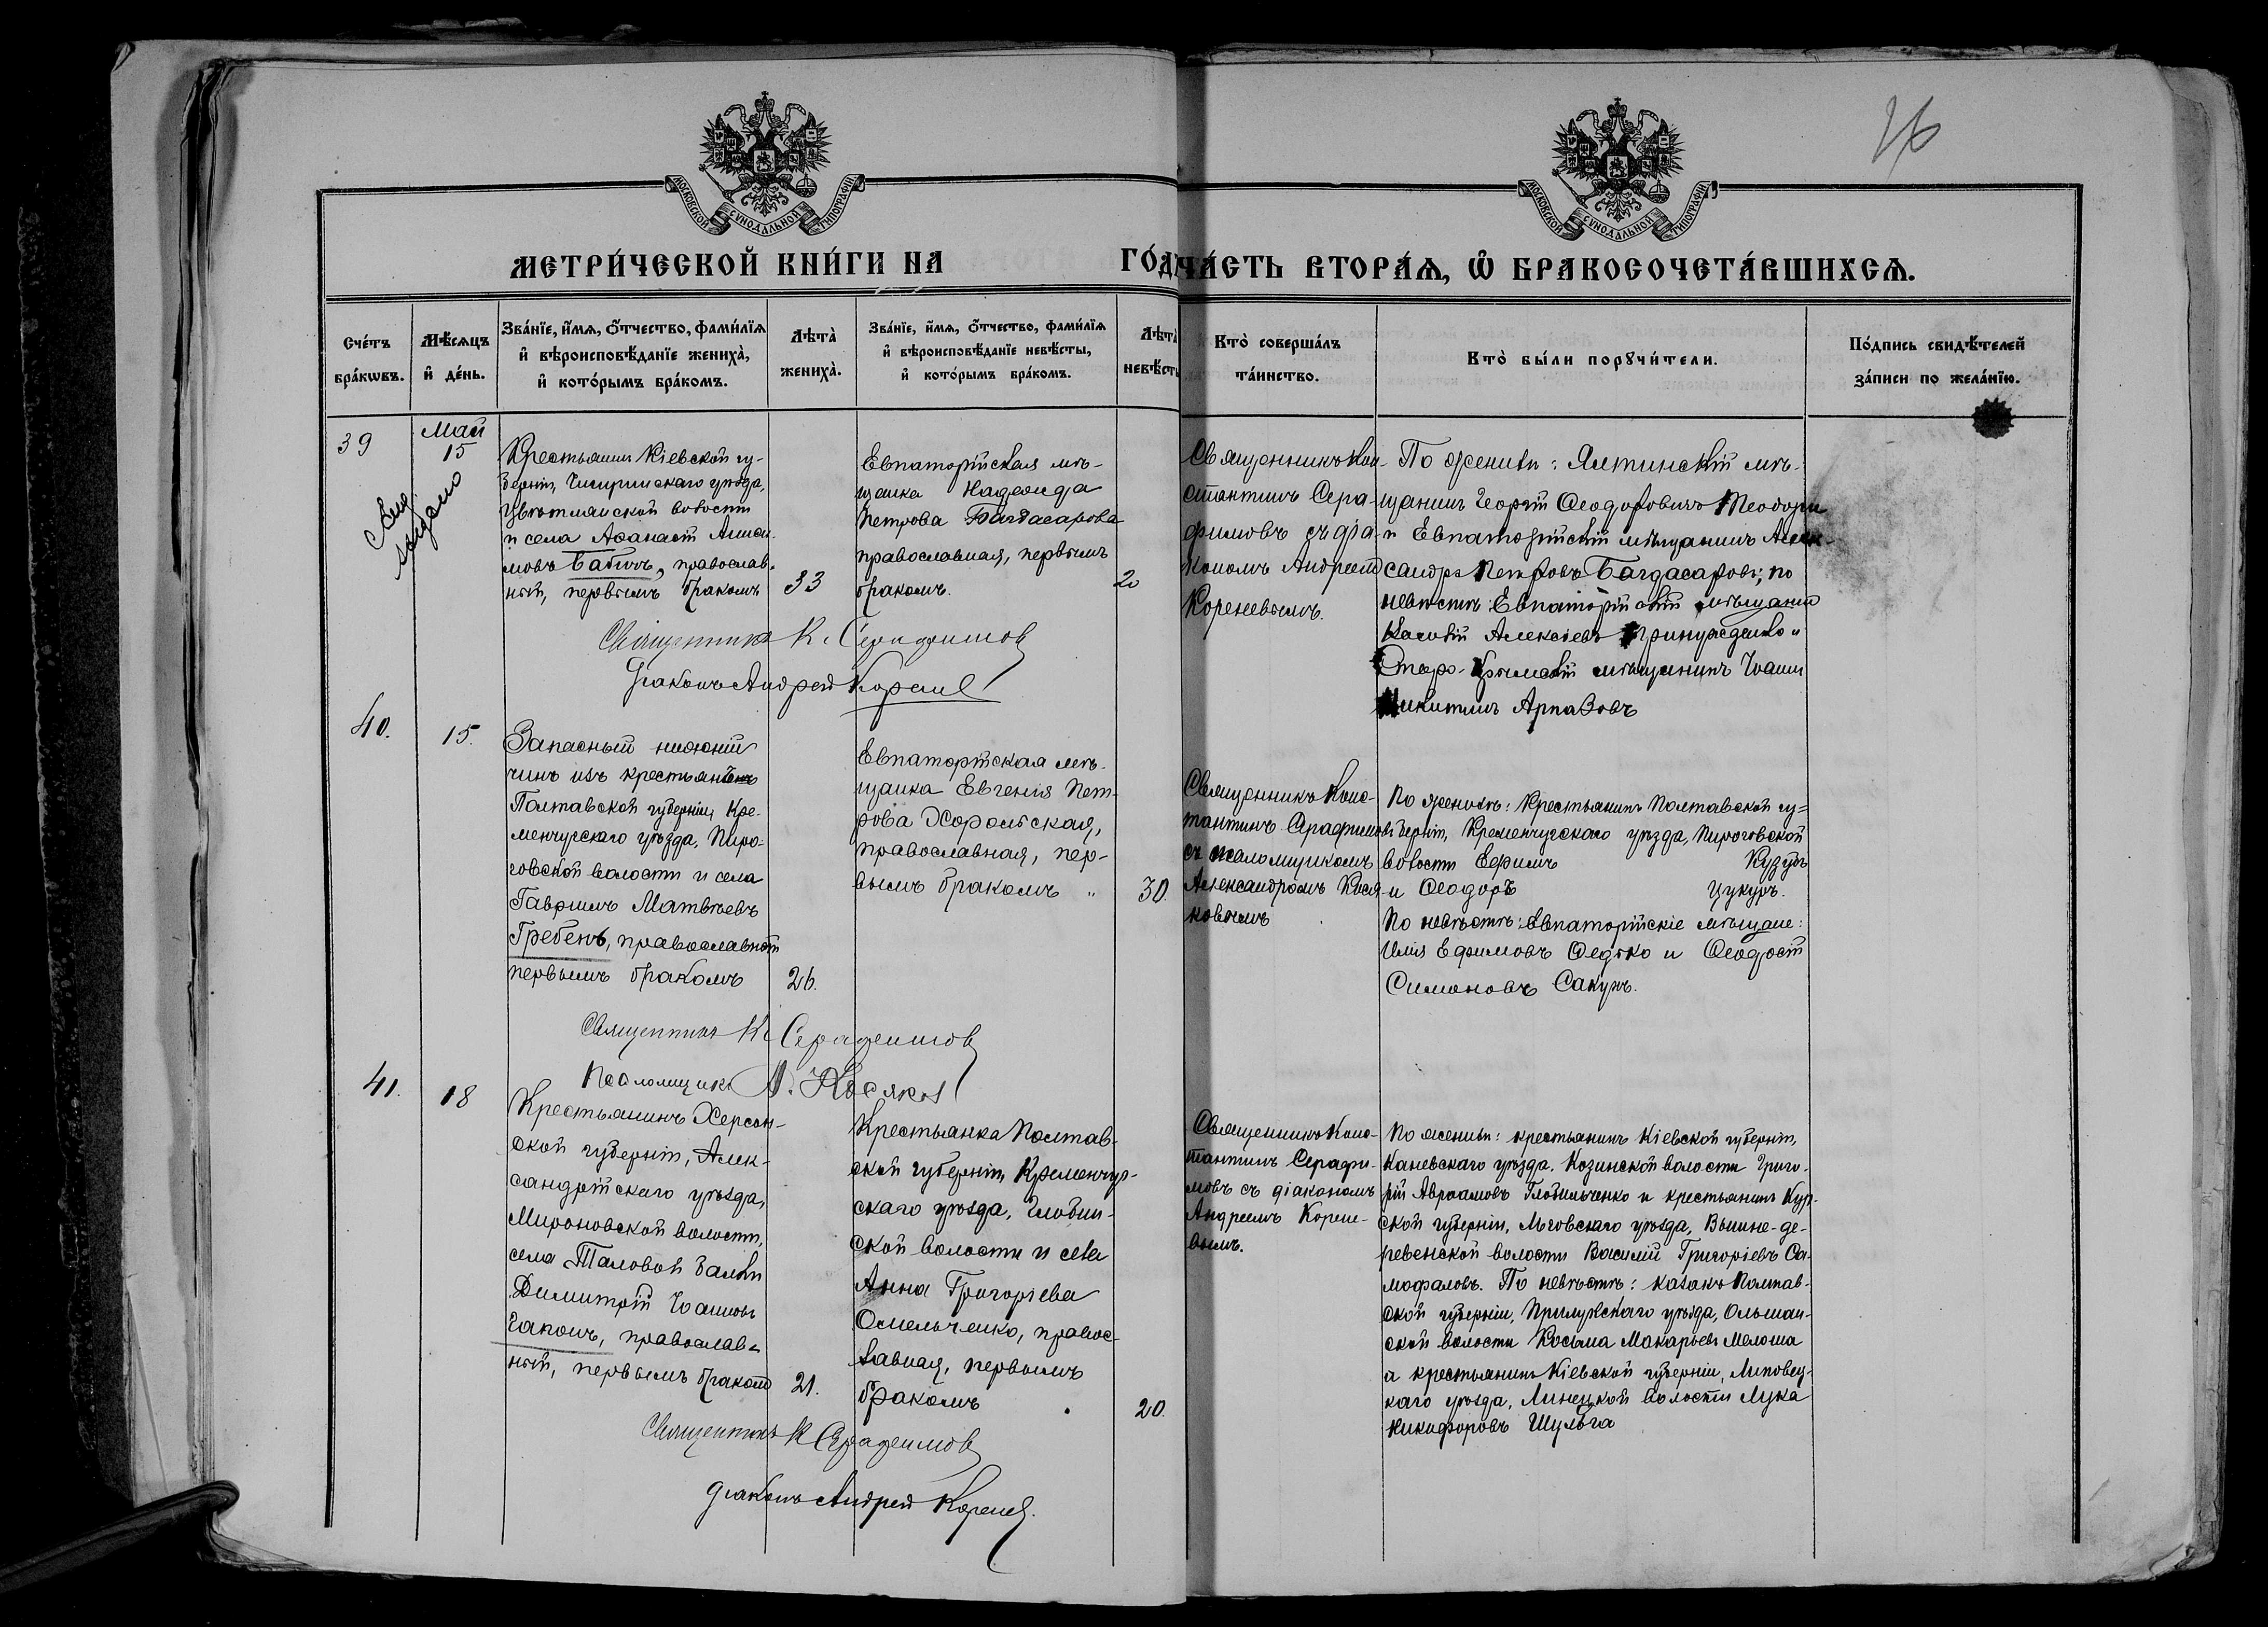 26
МОСКОВСКОЙ СѴНОДАЛЬНОЙ ТИПОГРАФІИ
МОСКОВСКОЙ СѴНОДАЛЬНОЙ ТИПОГРАФІИ
МЕТРИ́ЧЕСКОЙ КНИ́ГИ НА ГО́ДЪ
ЧА́СТЬ ВТОРА́Ѧ, Ѿ БРАКОСОЧЕТА́ВШИХСѦ.
Сче́тъ
бра́кѡвъ.
Мѣ́сѧцъ
и҆ де́нь.
Зва́нїе, и҆́мѧ, ѻ҆́тчество, фами́лїѧ
и҆ вѣроисповѣ́данїе жениха̀,
и҆ кото́рымъ бра́комъ.
Лѣта̀
жениха̀.
Зва́нїе, и҆́мѧ, ѻ҆́тчество, фами́лїѧ
и҆ вѣроисповѣ́данїе невѣ́сты,
и҆ кото́рымъ бра́комъ.
Лѣта̀
невѣ́сты
Кто̀ соверша́лъ
та́инство.
Кто̀ бы́ли порꙋчи́тели.
По́дпись свидѣ́телей
за́писи по жела́нїю.
39
Май
15
Свид.
выдано
Крестьянинъ Кіевской гу-
берніи, Чигиринскаго уѣзда,
волости
и села Аѳанасій
мовъ Бабичъ, православ-
ный, первымъ бракомъ
33
Евпаторійская мѣ-
щанка Надежда
Петрова Багдасарова
православная, первымъ
бракомъ.
20
Священникъ Кон-
стантинъ Сера-
фимовъ съ діа-
кономъ Андреемъ
Кореневымъ.
По женихѣ: Ялтинскій мѣ-
щанинъ Георгій Ѳеодоровичъ
и Евпаторійскій мѣщанинъ Алек-
сандръ Петровъ Багдасаровъ; по
невѣстѣ: Евпаторійскій мѣщанин
Алексѣевъ Принужденко и
Старо-Крымскій мѣщанинъ Іоаннъ
Никитинъ
Священникъ К. Серафимов
Діаконъ Андрей Корене
40.
15.
Запасный нижній
чинъ изъ крестьянъ
Полтавской губерніи, Кре-
менчугскаго уѣзда, Пиро-
говской волости и села
Гавріилъ Матвѣевъ
Гребень, православный
первымъ бракомъ
26.
Евпаторійская мѣ-
щанка Евгенія Пет-
рова Хорольская,
православная, пер-
вымъ бракомъ "
30.
Священникъ Конс-
тантинъ Серафимовъ
съ псаломщикомъ
Александромъ Кося-
ковымъ
По женихѣ: Крестьянинъ Полтавской гу=
берніи, Кременчугскаго уѣзда, Пироговской
волости Ефимъ Кузубъ
и Ѳеодоръ Цукуръ.
По невѣстѣ: Евпаторійскіе мѣщане:
Илія Ефимовъ Ѳедько и Ѳеодосій
Симоновъ Сакунъ.
Священникъ К. Серафимов
Псаломщикъ А. Косяков
41.
18
Крестьянинъ Херсон-
ской губерніи, Алек-
сандрійскаго уѣзда,
Мироновской волости,
села Таловой Балки
Димитрій Іоанновъ
Гапонъ, православ-
ный, первымъ бракомъ
21.
Крестьянка Полтав-
ской губерніи, Кременчуг-
скаго уѣзда, Глобин-
ской волости и села
Анна Григоріева
Омельченко, правос-
лавная, первымъ
бракомъ
20.
Священникъ Конс-
тантинъ Серафи-
мовъ съ діакономъ
Андреемъ Корене-
вымъ.
По женихѣ: крестьянинъ Кіевской губерніи,
Каневскаго уѣзда, Козинской волости Григо-
рій Авраамовъ и крестьянинъ Кур-
ской губерніи, Льговскаго уѣзда, Вышне-де-
ревенской волости Василій Григоріевъ Са-
мофаловъ. По невѣстѣ: казакъ Полтав-
ской губерніи, Прилукскаго уѣзда, Ольшан-
ской волости Косьма Макарьевъ Мелоша
и крестьянинъ Кіевской губерніи, Липовец-
каго уѣзда, Линецкой волости Лука
Никифоровъ Шульга
Священникъ К Серафимов
Діаконъ Андрей Коренев.